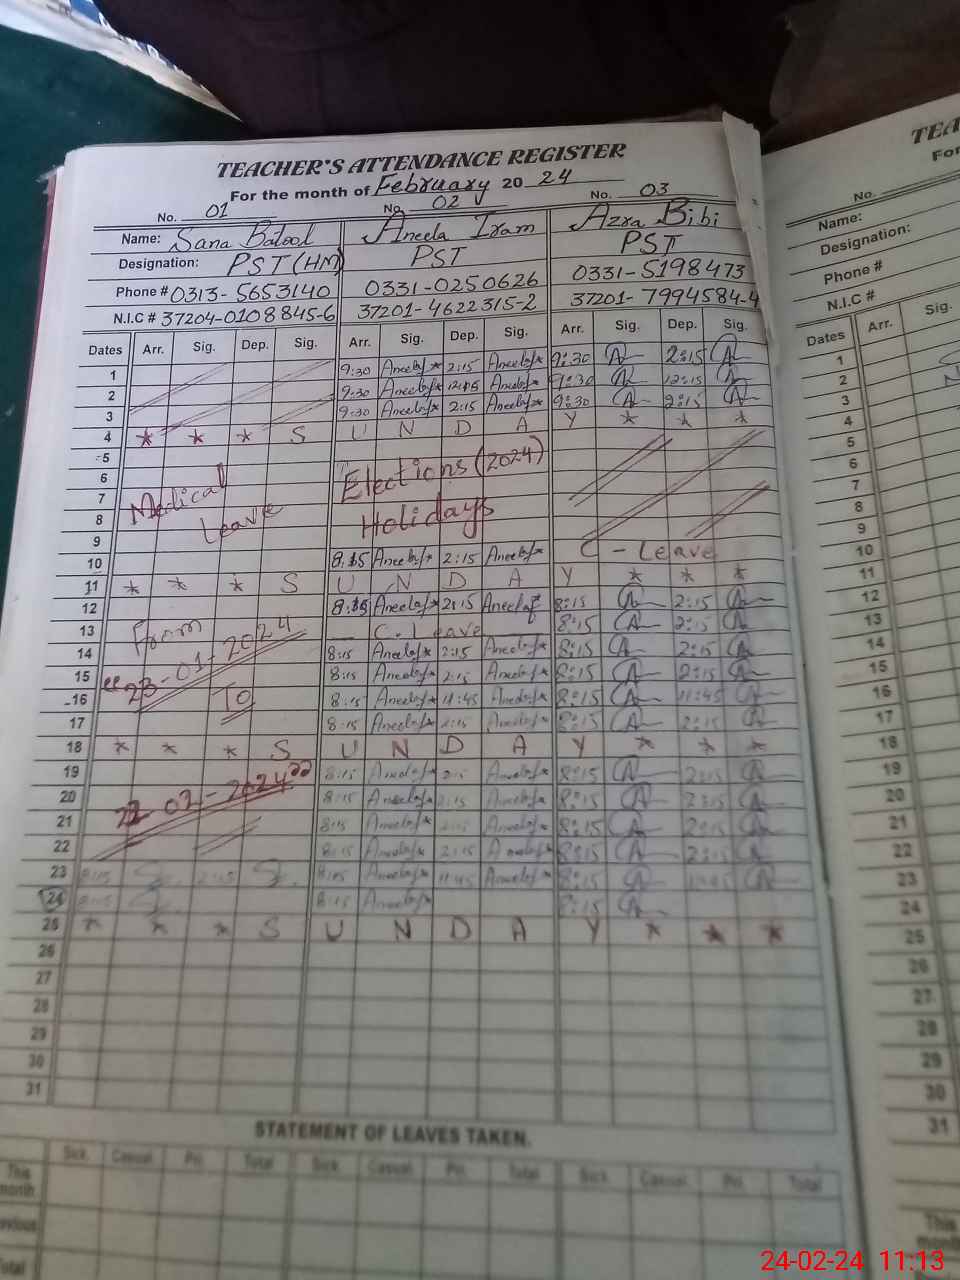 TEACHER'S ATTENDANCE REGISTER
For the month of February 2024
No. 01 No. 02 No. 03
Name: Sana Batool Aneela Iram Azra Bibi
Designation: PST (HM) PST PST
Phone # 0313-5653140 0331-0250626 0331-5198473
N.I.C # 37204-0108845-6 37201-4622315-2 37201-7994584-4
Dates Arr. Sig. Dep. Sig. Arr. Sig. Dep. Sig. Arr. Sig. Dep. Sig.
1 9:30 2:15 9:30 2:15
2 9:30 12:15 9:30 12:15
3 9:30 2:15 9:30 2:15
4 * * * S U N D A Y * * *
5
6 Elections (2024)
7 Medical
8 Leave Holidays
9
10 8:15 2:15 C-Leave
11 * * * S U N D A Y * * *
12 8:15 2:15 8:15 2:15
13 From C. Leave 8:15 2:15
14 8:15 2:15 8:15 2:15
15 "23-01-2024 8:15 2:15 8:15 2:15
16 To 8:15 11:45 8:15 11:45
17 8:15 2:15 8:15 2:15
18 * * * S U N D A Y * * *
19 8:15 2:15 8:15 2:15
20 22-02-2024" 8:15 2:15 8:15 2:15
21 8:15 2:15 8:15 2:15
22 8:15 2:15 8:15 2:15
23 8:15 2:15 8:15 11:45 8:15 11:45
24 8:15 8:15 8:15
25 * * * S U N D A Y * * *
26
27
28
29
30
31
STATEMENT OF LEAVES TAKEN.
Sick Casual Pri. Total Sick Casual Pri. Total Sick Casual Pri. Total
This month
Total
TEA
For
No.
Name:
Designation:
Phone #
N.I.C #
Dates Arr. Sig.
1
2
3
4
5
6
7
8
9
10
11
12
13
14
15
16
17
18
19
20
21
22
23
24
25
26
27
28
29
30
31
This
24-02-24 11:13